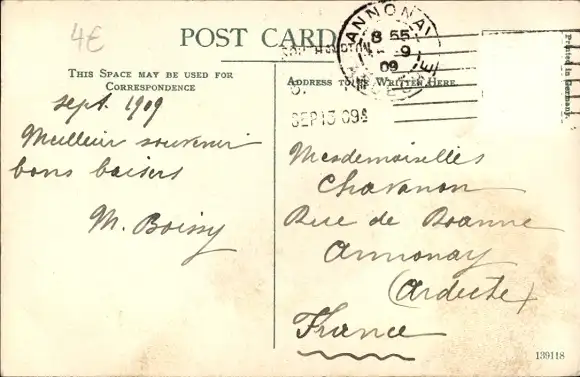 4€
POST CARD
THIS SPACE MAY BE USED FOR
CORRESPONDENCE
ADDRESS TO BE WRITTEN HERE.
Printed in Germany.
ANNONAY
8 55
9
09
SEP 13 09
sept. 1909
Meilleur souvenir
bons baisers
M. Boissy
Mesdemoiselles
Chavanon
Rue de Roanne
Annonay
(Ardèche)
France
139118